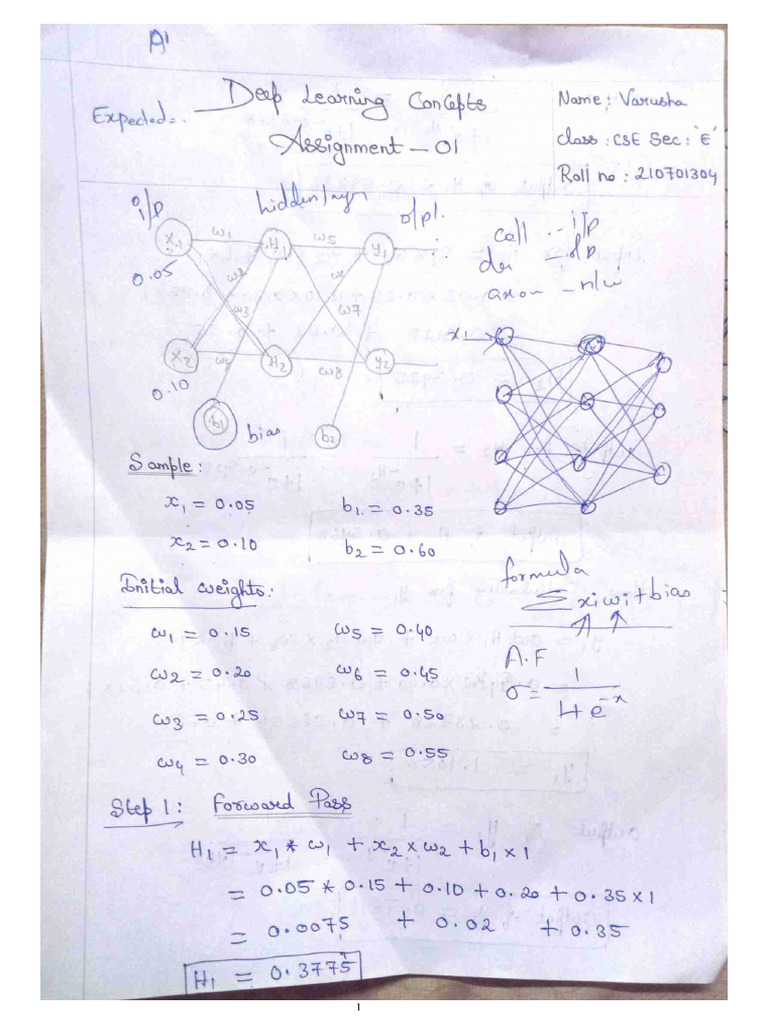 A1
Expected:
Deep Learning Concepts
Assignment - 01
Name: Varusha
class: CSE Sec: 'E'
Roll no: 210701304
i/p
hidden layer
o/p
x1 w1 H1 w5 y1
0.05
w2 w6
w3 w7
x2 H2 w8 y2
0.10
b1 bias b2
cell - i/p
- o/p
axon - n/w
x1
Sample:
x1 = 0.05 b1 = 0.35
x2 = 0.10 b2 = 0.60
Initial weights:
w1 = 0.15 w5 = 0.40
w2 = 0.20 w6 = 0.45
w3 = 0.25 w7 = 0.50
w4 = 0.30 w8 = 0.55
formula
Σ xiwi + bias
A.F
σ = 1
1+e^-x
Step 1: Forward Pass
H1 = x1 * w1 + x2 × w2 + b1 × 1
= 0.05 * 0.15 + 0.10 + 0.20 + 0.35 × 1
= 0.0075 + 0.02 + 0.35
H1 = 0.3775
1